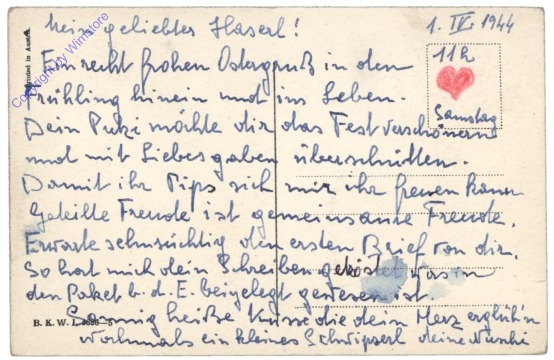 Mein geliebtes Haserl!
1. IV. 1944
11h
Samstag
Ein recht frohen Ostergruß in den
Frühling hinein und ins Leben.
Dein Putzi möchte dir das Fest verschönern
und mit Liebesgaben überschütten.
Damit ihr Tips sich mir ihr freuen kann
Geteilte Freude ist gemeinsame Freude.
Erwarte sehnsüchtig den ersten Brief von dir.
So hat mich dein Schreiben getröstet was in
den Paket b. d. E. beigelegt gewesen ist.
Sonnig heiße Küsse die dein Herz erglüh'n
nochmals ein kleines Schwipserl deine
Printed in Austria
B. K. W. I.
Copyright by Wimstore